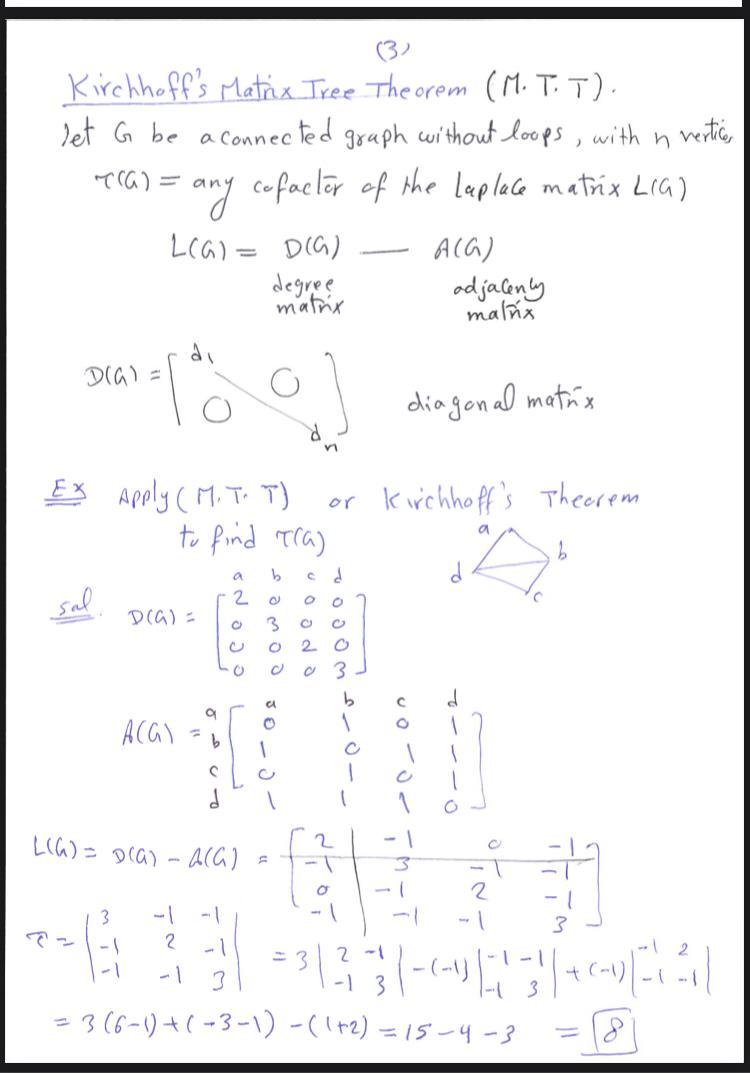 (3)
Kirchhoff's Matrix Tree Theorem (M. T. T).
let G be a connected graph without loops, with n vertices
τ(G) = any cofactor of the Laplace matrix L(G)
L(G) = D(G) — A(G)
degree matrix adjacency matrix
D(G) = [ d1 0 0 dn ] diagonal matrix
Ex Apply (M. T. T) or Kirchhoff's Theorem
to find τ(G)
a b c d
sol. D(G) =
a b c d
2 0 0 0
0 3 0 0
0 0 2 0
0 0 0 3
A(G) =
a b c d
a 0 1 0 1
b 1 0 1 1
c 0 1 0 1
d 1 1 1 0
L(G) = D(G) - A(G) =
2 -1 0 -1
-1 3 -1 -1
0 -1 2 -1
-1 -1 -1 3
τ = | 3 -1 -1 |
| -1 2 -1 |
| -1 -1 3 |
= 3 | 2 -1 | - (-1) | -1 -1 | + (-1) | -1 2 |
| -1 3 | | -1 3 | | -1 -1 |
= 3(6-1) + (-3-1) - (1+2) = 15-4-3 = 8